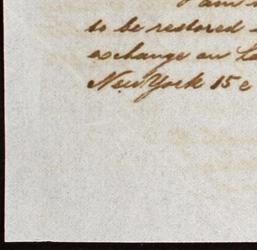 I am
to be restored
exchange on
New York 15 c